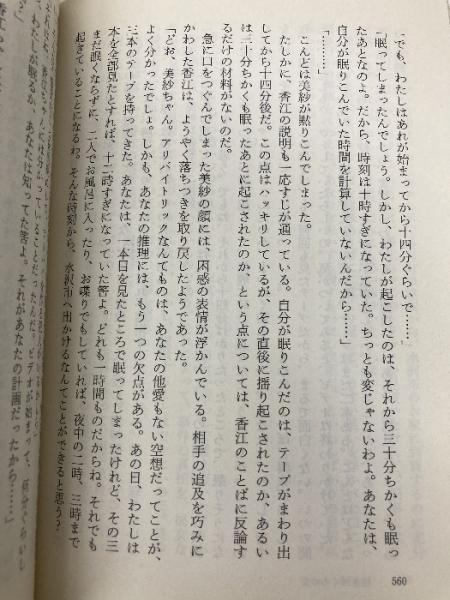 「でも、わたしはあれが始まってから十四分ぐらいで……」
「眠ってしまったんでしょう。しかし、わたしが起こしたのは、それから三十分ちかくも眠っ
たあとなのよ。だから、時刻は十時すぎになっていた。ちっとも変じゃないわよ。あなたは、
自分が眠りこんでいた時間を計算していないんだから……」
「…………」
こんどは美紗が黙りこんでしまった。
たしかに、香江の説明も一応すじが通っている。自分が眠りこんだのは、テープがまわり出
してから十四分後だ。この点はハッキリしているが、その直後に揺り起こされたのか、あるい
は三十分ちかくも眠ったあとに起こされたのか、という点については、香江のことばに反論す
るだけの材料がないのだ。
急に口をつぐんでしまった美紗の顔には、困惑の表情が浮かんでいる。相手の追及を巧みに
かわした香江は、ようやく落ちつきを取り戻したようであった。
「どお、美紗ちゃん。アリバイトリックなんてものは、あなたの他愛もない空想だってことが、
よく分かったでしょ。しかも、あなたの推理には、もう一つの欠点がある。あの日、わたしは
三本のテープを持ってきた。あなたは、一本目を見たところで眠ってしまったけれど、その三
本を全部見たとすれば、十二時すぎになっていた筈よ。どれも一時間ものだからね。それでも
まだ眠くならずに、二人でお風呂に入ったり、お喋りでもしていれば、夜中の二時、三時まで
起きていることになるわ。そんな時刻から、水沢市へ出かけるなんてことができると思う？」
わたしが眠るか、あなたは知ってた筈よ。それがあなたの計画だったから……」
560